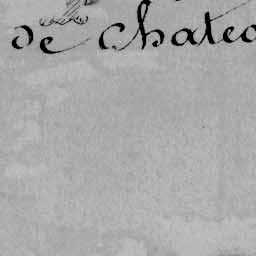 de Chatea